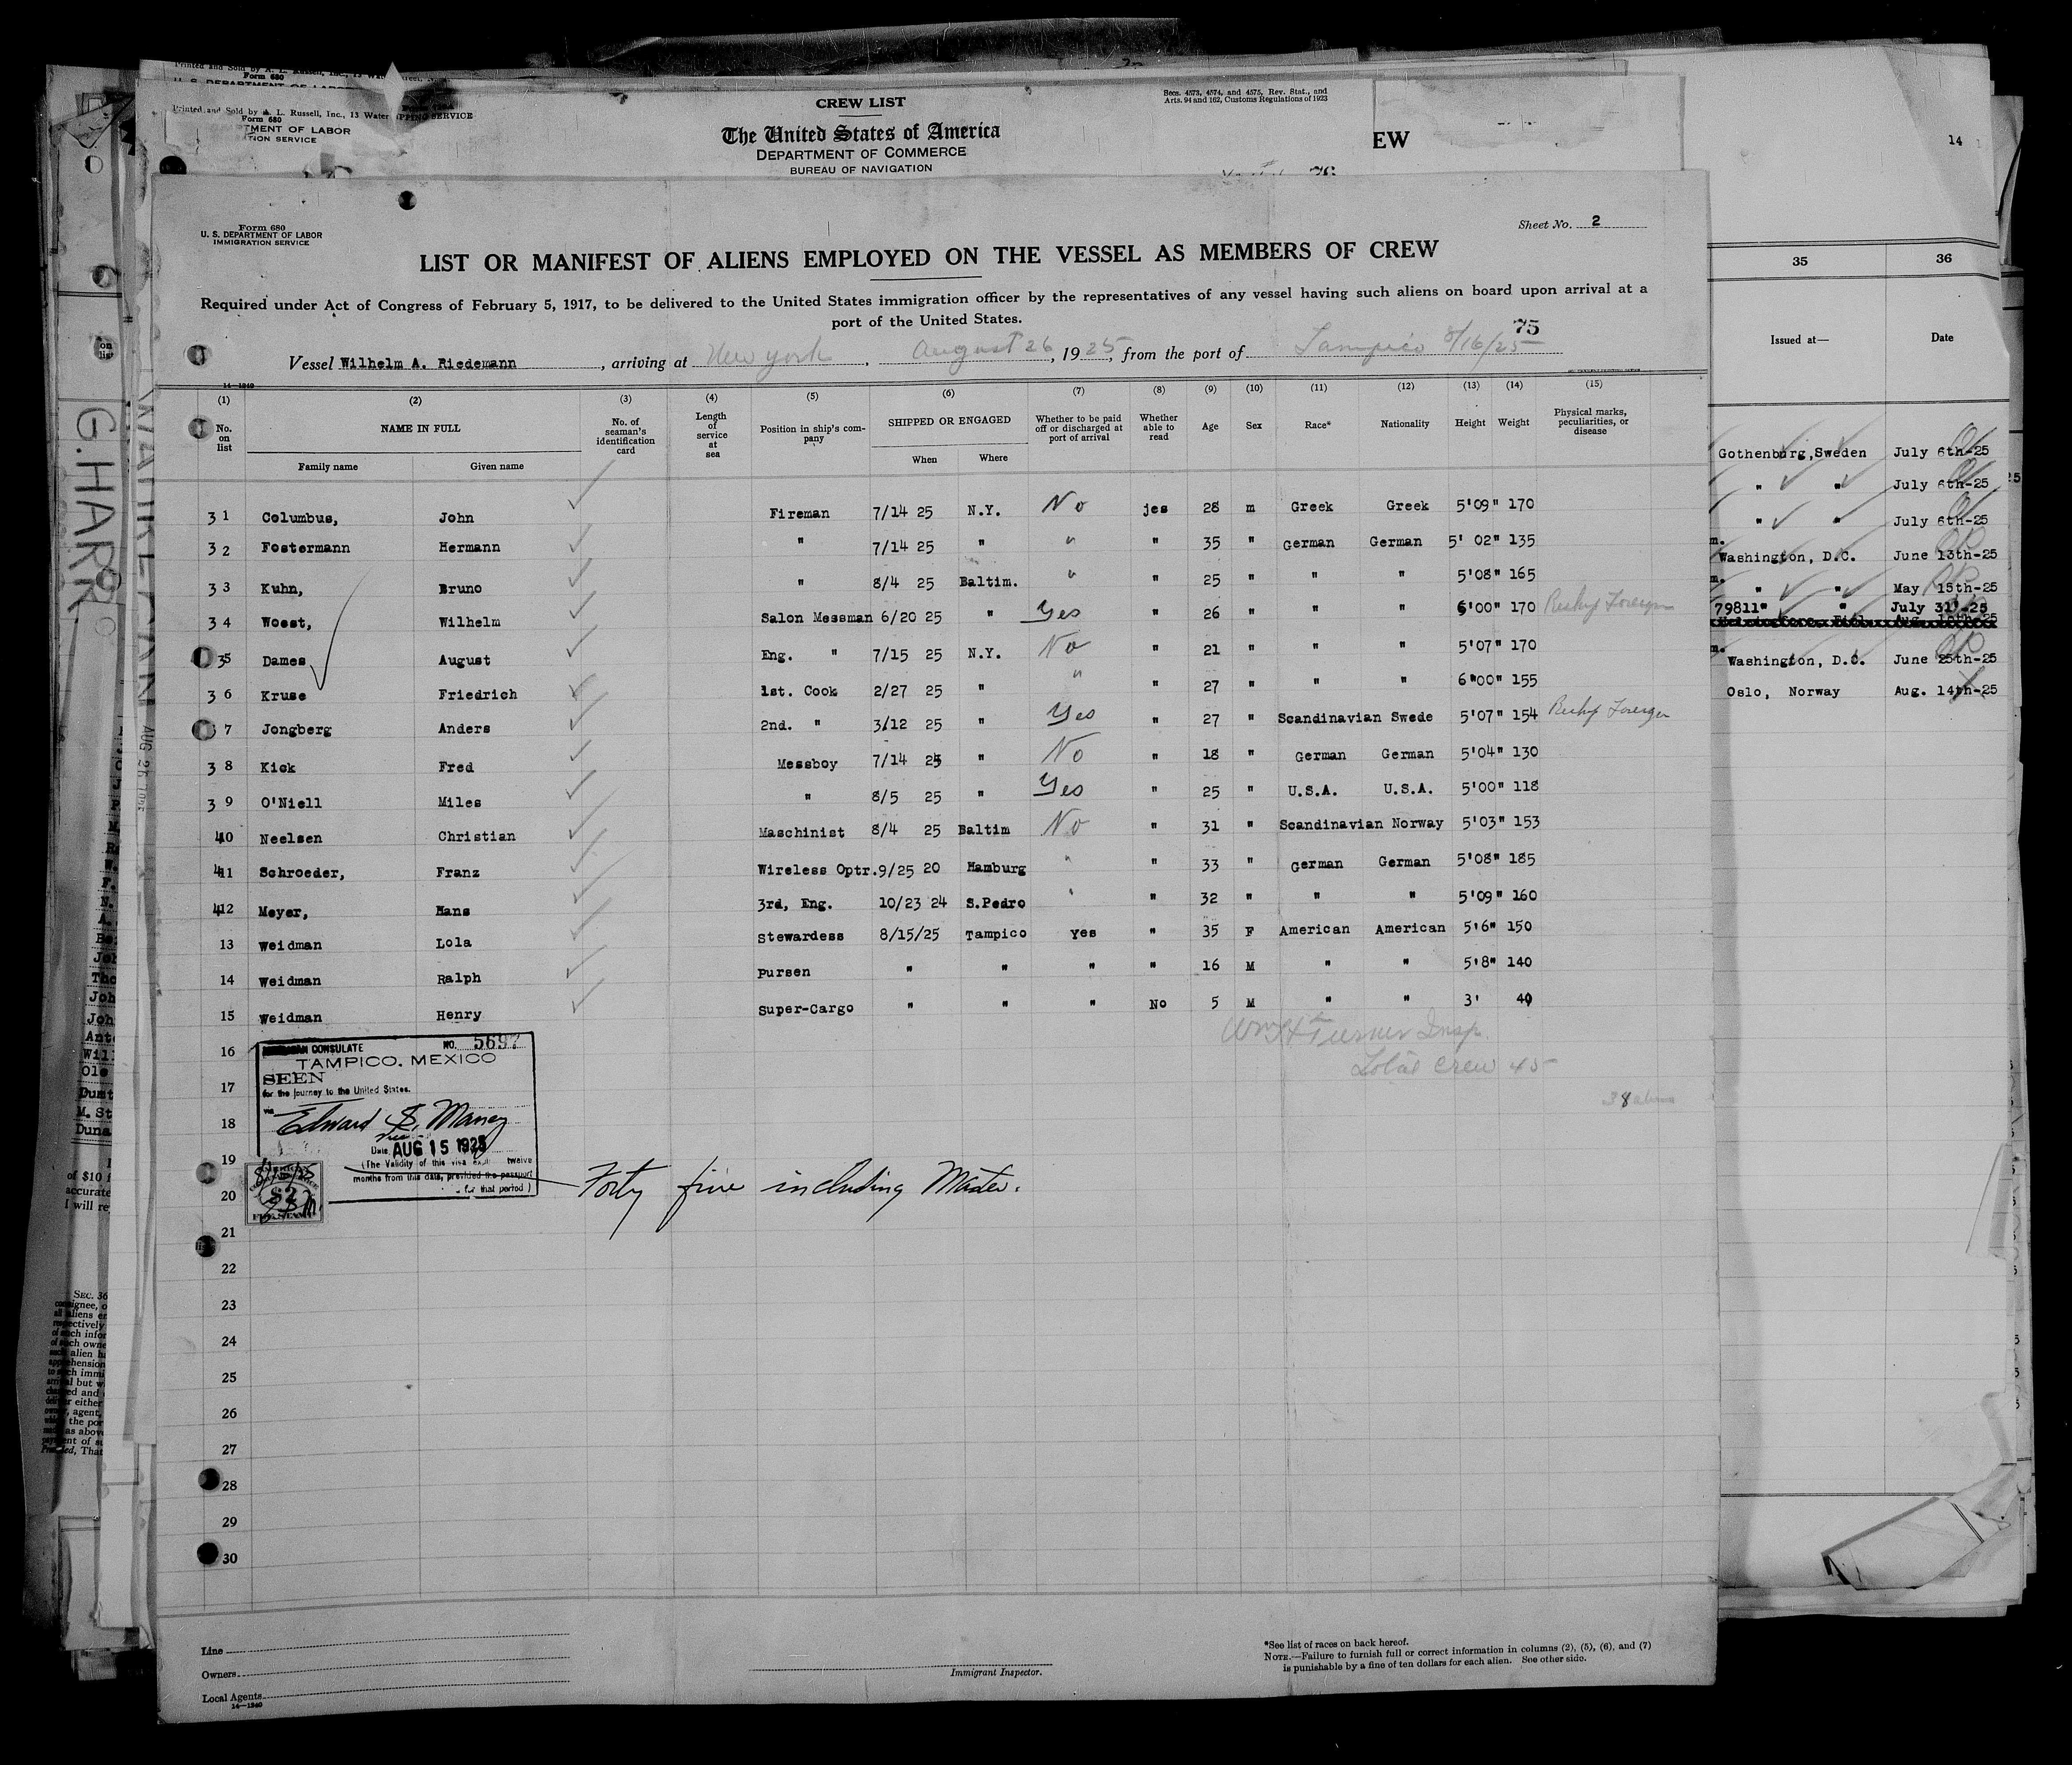 Printed and Sold by A. L. Russell, Inc., 13 Water
Form 680
CREW LIST
Secs. 4573, 4574, and 4575, Rev. Stat., and
Arts. 94 and 162, Customs Regulations of 1923
The United States of America
DEPARTMENT OF COMMERCE
BUREAU OF NAVIGATION
EW
14
Form 680
U. S. DEPARTMENT OF LABOR
IMMIGRATION SERVICE
Sheet No. 2
LIST OR MANIFEST OF ALIENS EMPLOYED ON THE VESSEL AS MEMBERS OF CREW
Required under Act of Congress of February 5, 1917, to be delivered to the United States immigration officer by the representatives of any vessel having such aliens on board upon arrival at a
port of the United States.
75
Vessel Wilhelm A. Riedemann, arriving at New York, August 26, 1925, from the port of Tampico 8/16/25
14-1240
(1) (2) (3) (4) (5) (6) (7) (8) (9) (10) (11) (12) (13) (14) (15)
No. on list NAME IN FULL Family name Given name No. of seaman's identification card Length of service at sea Position in ship's company SHIPPED OR ENGAGED When Where Whether to be paid off or discharged at port of arrival Whether able to read Age Sex Race* Nationality Height Weight Physical marks, peculiarities, or disease
31 Columbus, John Fireman 7/14 25 N.Y. No jes 28 m Greek Greek 5'09" 170
32 Fostermann Hermann " 7/14 25 " " " 35 " German German 5' 02" 135
33 Kuhn, Bruno " 8/4 25 Baltim. " " 25 " " " 5'08" 165
34 Woest, Wilhelm Salon Messman 6/20 25 " Yes " 26 " " " 6'00" 170 Reship Foreign
35 Dames August Eng. " 7/15 25 N.Y. No " 21 " " " 5'07" 170
36 Kruse Friedrich 1st. Cook 2/27 25 " " " 27 " " " 6"00" 155
37 Jongberg Anders 2nd. " 3/12 25 " Yes " 27 " Scandinavian Swede 5'07" 154 Reship Foreign
38 Kick Fred Messboy 7/14 25 " No " 18 " German German 5'04" 130
39 O'Niell Miles " 8/5 25 " Yes " 25 " U.S.A. U.S.A. 5'00" 118
40 Neelsen Christian Maschinist 8/4 25 Baltim No " 31 " Scandinavian Norway 5'03" 153
41 Schroeder, Franz Wireless Optr. 9/25 20 Hamburg " " 33 " German German 5'08" 185
42 Meyer, Hans 3rd, Eng. 10/23 24 S.Pedro " " 32 " " " 5'09" 160
13 Weidman Lola Stewardess 8/15/25 Tampico Yes " 35 F American American 5'6" 150
14 Weidman Ralph Pursen " " " " 16 M " " 5'8" 140
15 Weidman Henry Super-Cargo " " " No 5 M " " 3' 40
Wm H Turner Insp.
Total Crew 45
38 aliens
16
17
18
19
20
21
22
23
24
25
26
27
28
29
30
CONSULATE NO. 5697
TAMPICO. MEXICO
SEEN
for the journey to the United States.
via
Edward S. Maney
Date AUG 15 1925
(The Validity of this visa twelve
months from this date, provided the passport
for that period)
Forty five including Master.
Line
Owners
Local Agents
14-1240
Immigrant Inspector.
*See list of races on back hereof.
NOTE.—Failure to furnish full or correct information in columns (2), (5), (6), and (7)
is punishable by a fine of ten dollars for each alien. See other side.
35 36
Issued at— Date
Gothenburg, Sweden July 6th-25
" " July 6th-25
" " July 6th-25
Washington, D.C. June 13th-25
" " May 15th-25
79811" " July 31'-25
Washington, D.C. June 25th-25
Oslo, Norway Aug. 14th-25
G.HARR